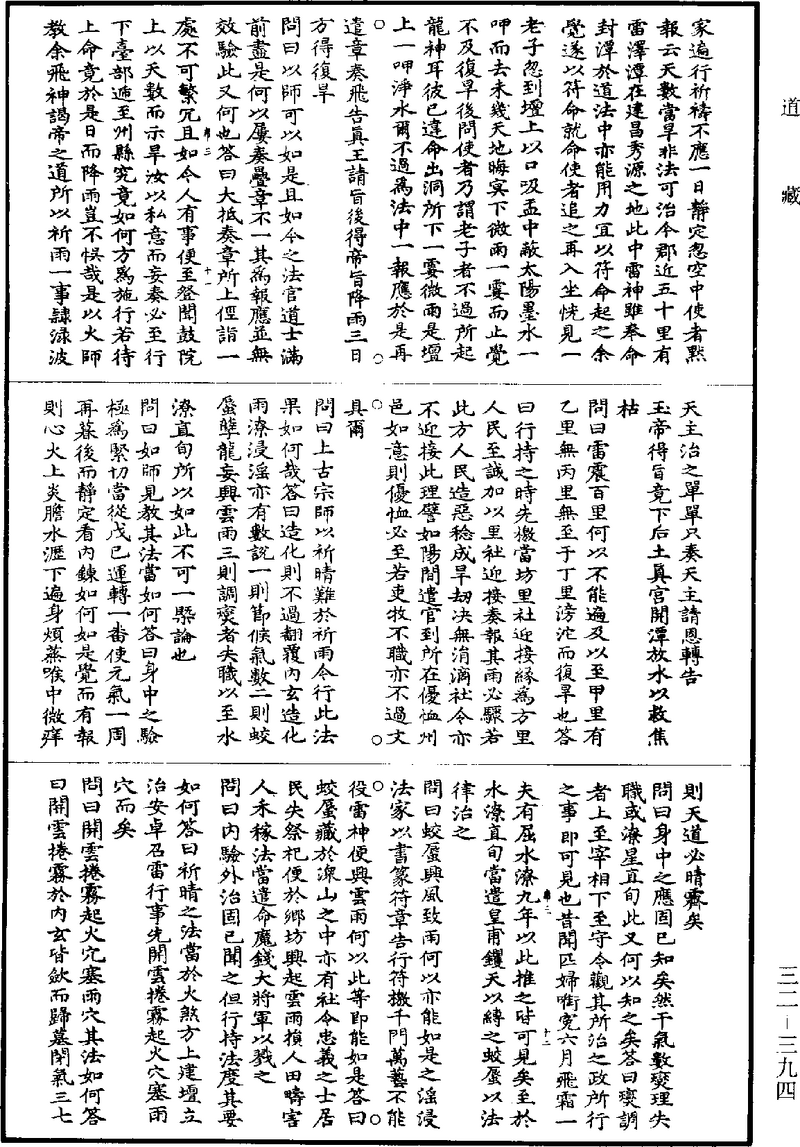 道藏
家遍行祈禱不應一日靜定忽空中使者黙
報云天數當旱非法可治今郡近五十里有
雷澤潭在建昌秀源之地此中雷神雖奉命
封潭於道法中亦能用力宜以符命起之余
覺遂以符命就命使者追之再入坐恍見一
老子忽到壇上以口吸盂中蔽太陽墨水一
呷而去未幾天地晦冥下微雨一霎而止覺
不及復旱後問使者乃謂老子者不過所起
龍神耳彼已違命出洞所下一霎微雨是壇
上一呷淨水爾不過爲法中一報應於是再
遣章奏飛告眞王請旨後得帝旨降雨三日
方得復旱
問曰以師可以如是且如今之法官道士滿
前盡是何以屢奏疊章不一其爲報應並無
效驗此又何也答曰大抵奏章所上徑詣一
處不可繁冗且如今人有事便至登聞鼓院
上以天數而示旱汝以私意而妄奏必至行
下臺部遞至州縣究竟如何方爲施行若待
上命竟於是日而降雨豈不悞哉是以火師
教余飛神謁帝之道所以祈雨一事隸淥波
天主治之單單只奏天主請恩轉告
玉帝得旨竟下后土眞宫開潭放水以救焦
枯
問曰雷震百里何以不能遍及以至甲里有
乙里無丙里無至于丁里滂沱而復旱也答
曰行持之時先檄當坊里社迎接緣爲方里
人民至誠加以里社迎接奏報其雨必驟若
此方人民造惡稔成旱刼决無涓滴社令亦
不迎接此理譬如陽間遣官到所在優恤州
邑如意則優恤必至若吏牧不職亦不過文
具爾
問曰上古宗師以祈晴難於祈雨今行此法
果如何哉答曰造化則不過翻覆內玄造化
雨潦浸淫亦有數說一則節候氣數二則蛟
蜃孽龍妄興雲雨三則調燮者失職以至水
潦直旬所以如此不可一槩論也
問曰如師見教其法當如何答曰身中之驗
極爲緊切當從戊己運轉一番使元氣一周
再暮後而靜定看內鍊如何如是覺而有報
則心火上炎膽水遲下遍身煩蒸喉中微痒
則天道必晴霽矣
問曰身中之應固已知矣然干氣數燮理失
職或潦星直旬此又何以知之矣答曰燮調
者上至宰相下至守令觀其所治之政所行
之事即可見也昔聞匹婦啣寃六月飛霜一
夫有屈水潦九年以此推之皆可見矣至於
水潦直旬當遣皇甫钁天以縛之蛟蜃以法
律治之
問曰蛟蜃興風致雨何以亦能如是之淫浸
法家以書篆符章告行符檄千門萬藝不能
役雷神便興雲雨何以此等即能如是答曰
蛟蜃藏於深山之中亦有社令忠義之士居
民失祭祀便於鄉坊興起雲雨損人田疇害
人禾稼法當遣命魔錢大將軍以戮之
問曰内驗外治固已聞之但行持法度其要
如何答曰祈晴之法當於火煞方上建壇立
治安卓召雷行事先開雲捲霧起火穴塞雨
穴而矣
問曰開雲捲霧起火穴塞雨穴其法如何答
曰開雲捲霧於內玄皆斂而歸墓閉氣三七
三二－三九四